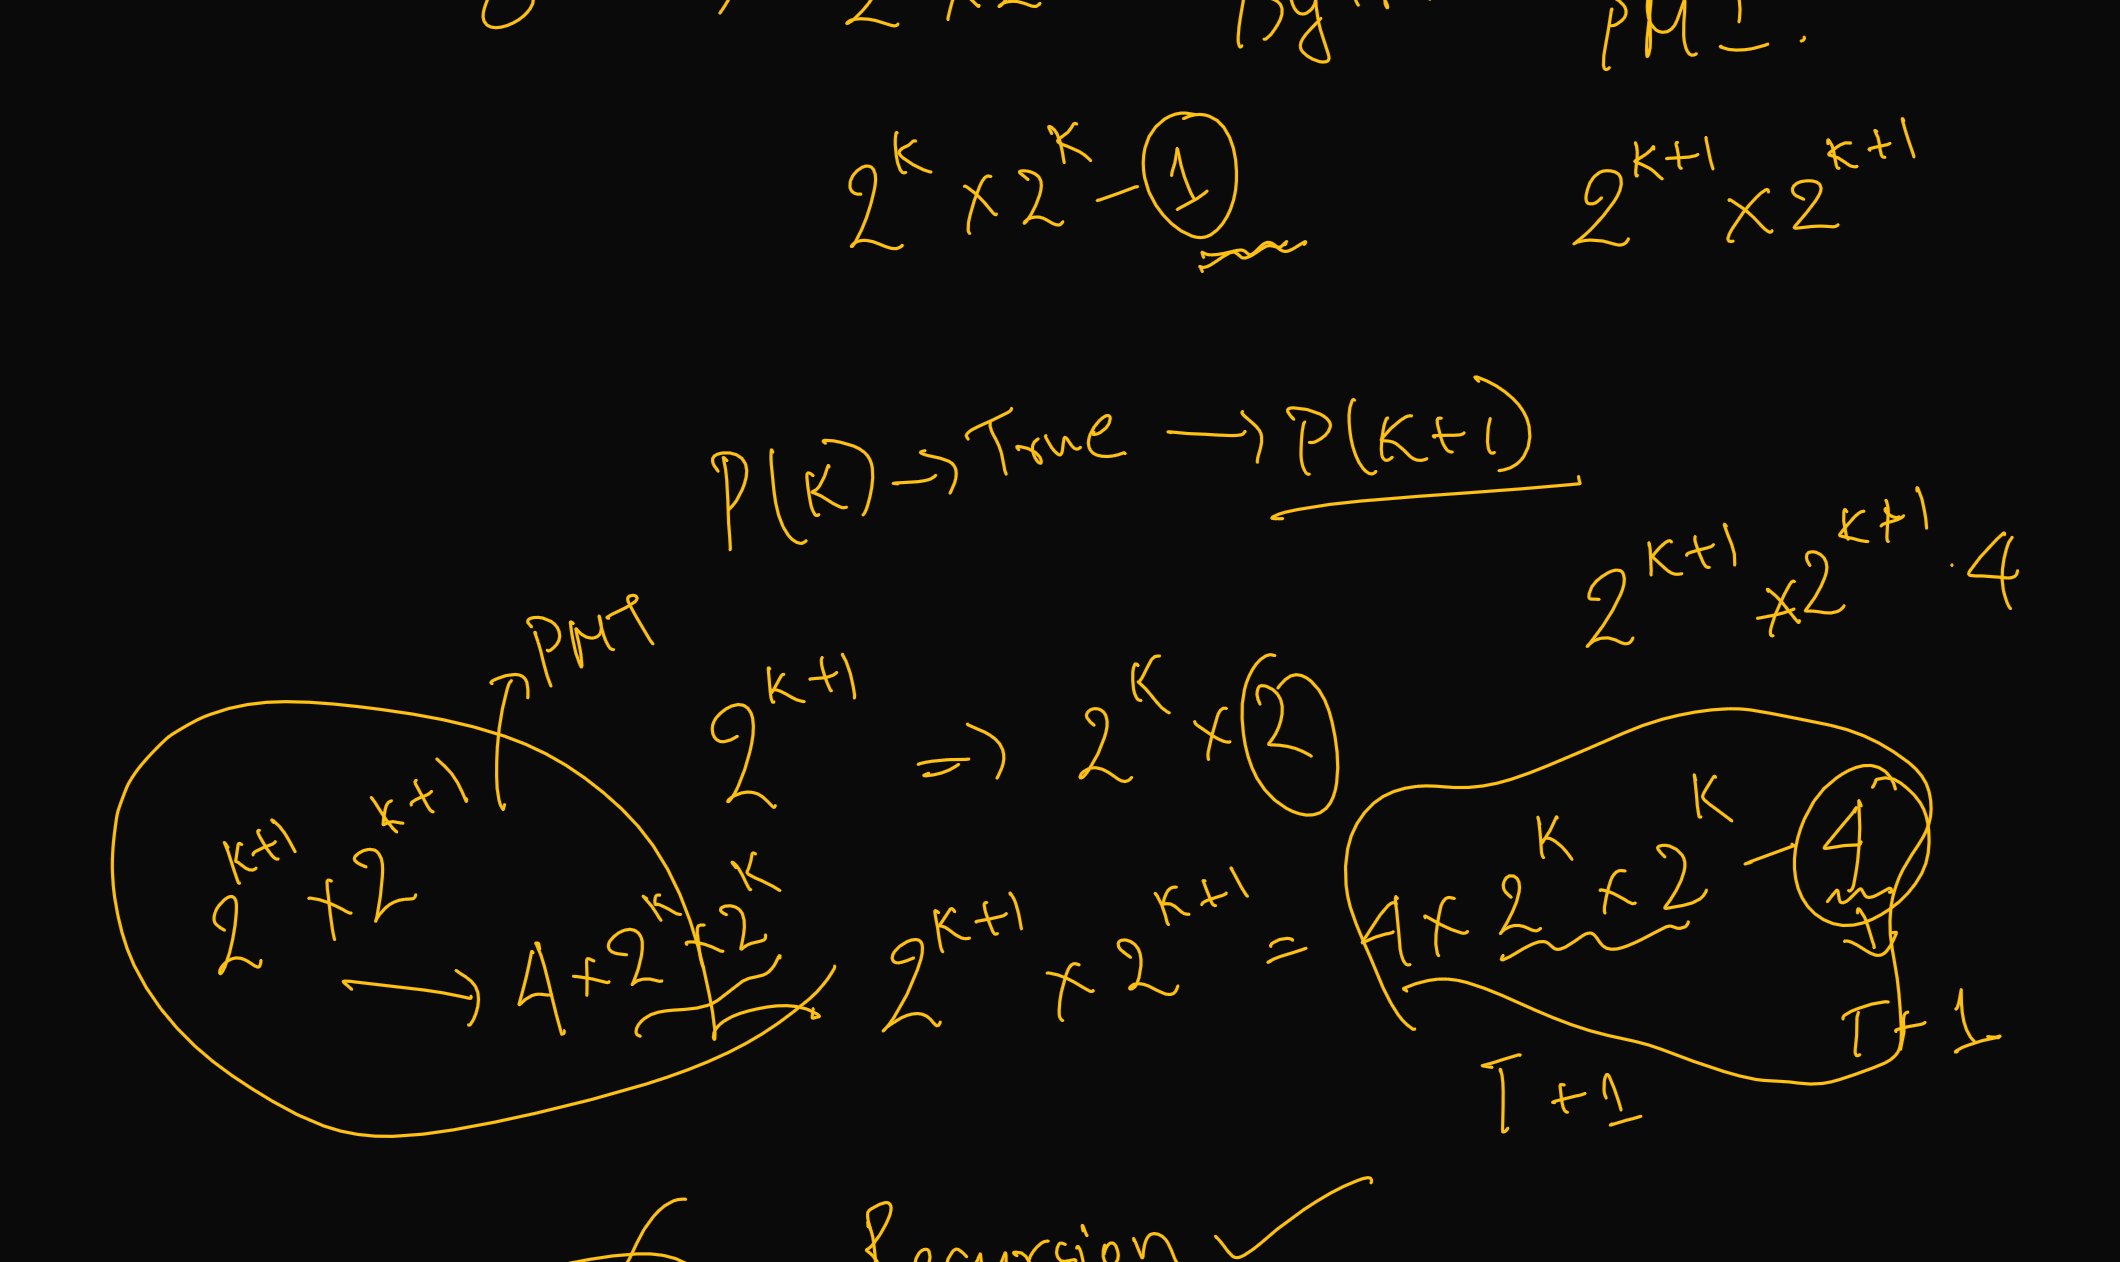 2 × 2 PMI.
2^K × 2^K - 1 2^K+1 × 2^K+1
P(K) → True → P(K+1)
2^K+1 × 2^K+1 · 4
PMI
2^K+1 ⇒ 2^K × 2
2^K+1 × 2^K+1 → 4 × 2^K × 2^K
2^K+1 × 2^K+1 = 4 × 2^K × 2^K - 4
T + 1
T + 1
Recursion